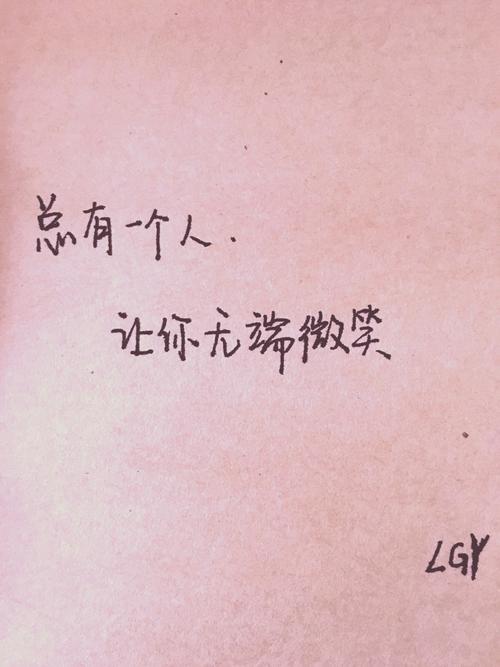 总有一个人.
让你无端微笑
LGY